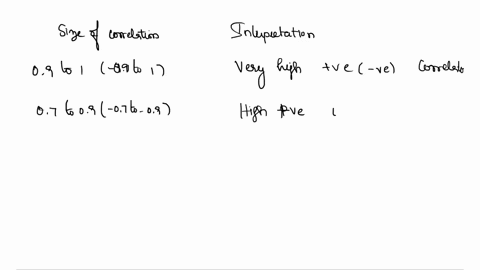 Size of correlation Interpretation
0.9 to 1 (-0.9 to 1) Very high +ve (-ve) Correlatio
0.7 to 0.9 (-0.7 to -0.9) High +ve (